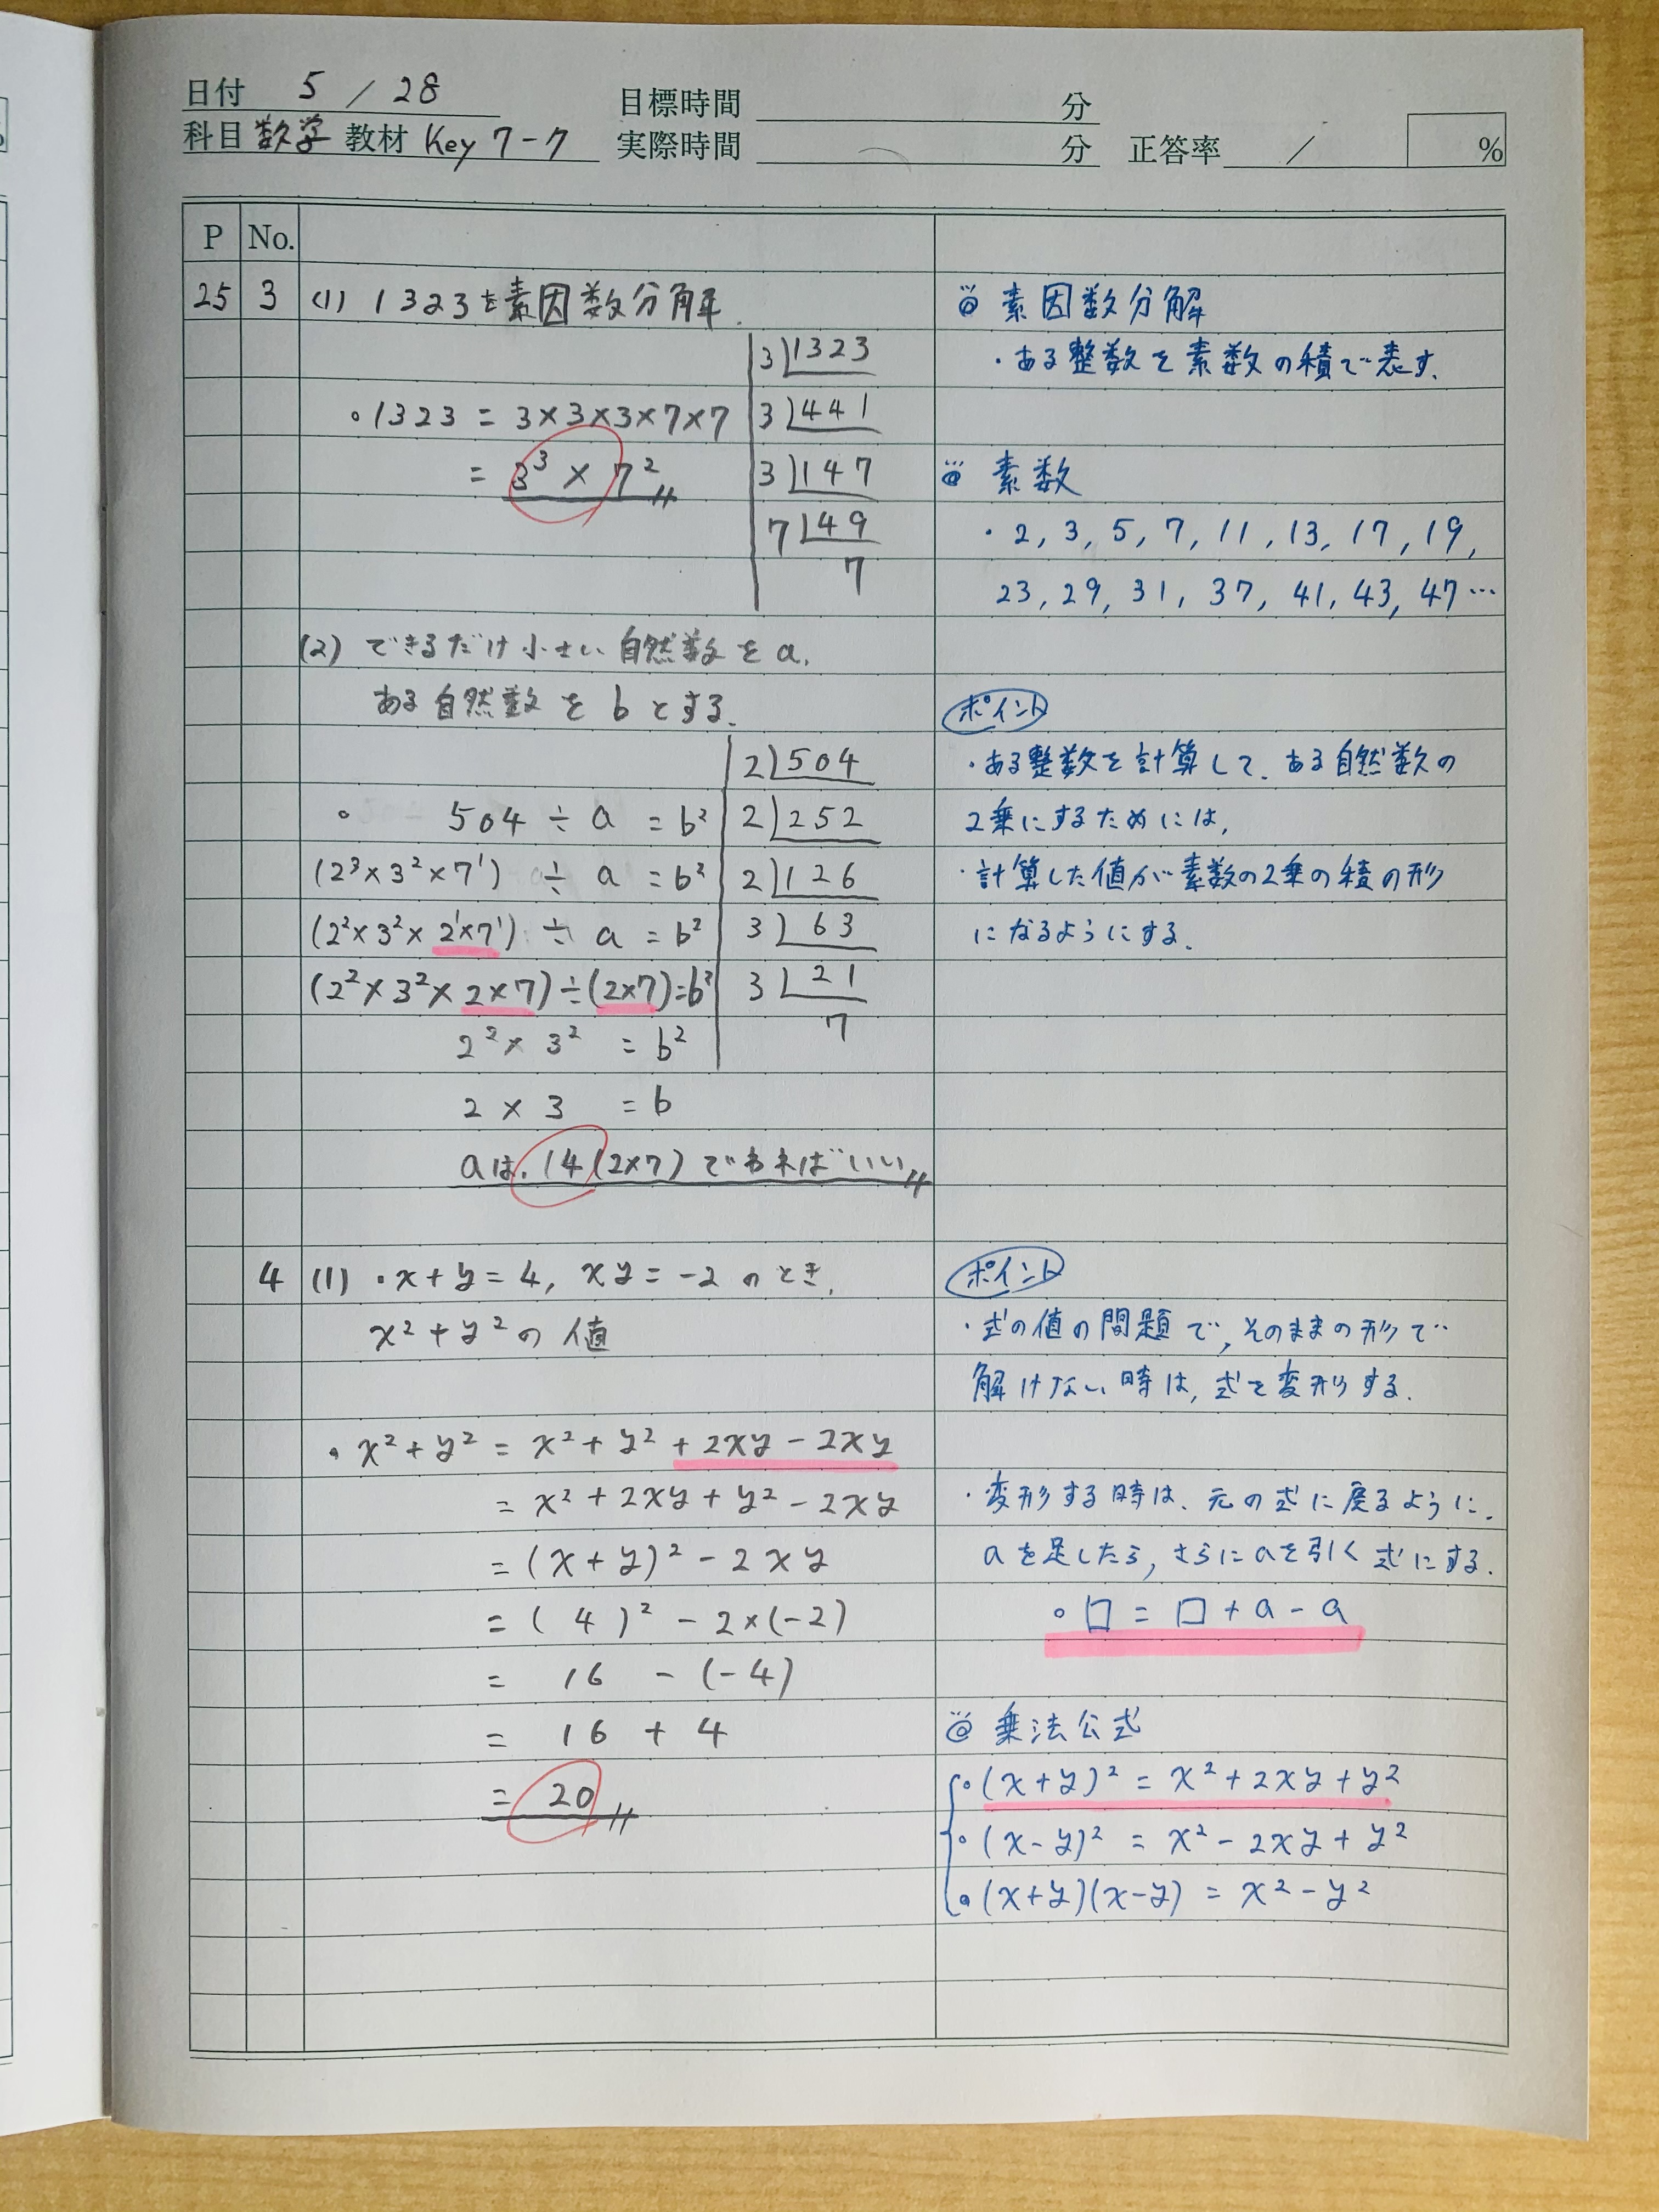 日付 5 / 28
目標時間 分
科目 数学 教材 Key 7-7
実際時間 分 正答率 / %
P No.
25 3 (1) 1323を素因数分解.
3 1323
・1323 = 3×3×3×7×7
3 441
= 3³ × 7²
3 147
7 49
7
(2) できるだけ小さい自然数をa,
ある自然数をbとする.
2 504
・ 504 ÷ a = b²
2 252
(2³×3²×7¹) ÷ a = b²
2 126
(2²×3²×2¹×7¹) ÷ a = b²
3 63
(2²×3²×2×7)÷(2×7)=b²
3 21
2² × 3² = b²
7
2 × 3 = b
aは, 14(2×7)であればいい
4 (1) ・x+y=4, xy=-2 のとき,
x²+y²の値
・x²+y² = x²+y²+2xy-2xy
= x²+2xy+y²-2xy
= (x+y)²-2xy
= ( 4 )² - 2×(-2)
= 16 - (-4)
= 16 + 4
= 20
◎ 素因数分解
・ある整数を素数の積で表す.
◎ 素数
・2, 3, 5, 7, 11, 13, 17, 19,
23, 29, 31, 37, 41, 43, 47…
ポイント
・ある整数を計算して, ある自然数の
2乗にするためには,
・計算した値が素数の2乗の積の形
になるようにする.
ポイント
・式の値の問題で, そのままの形で
解けない時は, 式を変形する.
・変形する時は, 元の式に戻るように,
aを足したら, さらにaを引く式にする.
・□ = □ + a - a
◎ 乗法公式
・(x+y)² = x²+2xy+y²
・(x-y)² = x²-2xy+y²
・(x+y)(x-y) = x²-y²